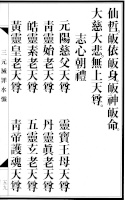 仙哲皈依皈身皈神皈命
大慈大悲無上天尊
志心朝禮
元陽慈父天尊
靈寶王母天尊
皓靈素老天尊
丹靈真老天尊
黃靈皇老天尊
五靈玄老天尊
青帝護魂天尊
三元滅罪水懺